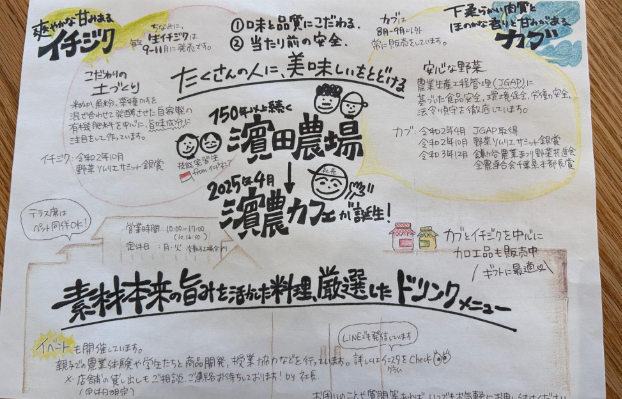 爽やかな甘みある
イチジク
ちなみに、
生イチジクは
9〜11月に発売です。
①味と品質にこだわる。
②当たり前の安全。
カブは
8月・9月以外
常に販売をしています。
下柔らかい肉質と
ほのかな香りと甘みがある
カブ
たくさんの人に、美味しいをとどける
こだわりの
土づくり
混ぜ合わせて発酵させた自家製の
有機肥料を中心に、旨味成分に
注目をし、作っています。
イチジク:令和2年10月
野菜ソムリエサミット銀賞
安心な野菜
農業生産工程管理(JGAP)に
基づいた食品安全、環境保全、労働の安全、
法令順守を徹底しています。
カブ:令和2年4月 JGAP取得
令和2年10月 野菜ソムリエサミット銀賞
150年以上続く
濱田農場
技能実習生
2025年4月
社長
濱農カフェが誕生!
テラス席は
ペット同伴OK!
営業時間:10:00〜17:00
定休日:月・火
カブとイチジクを中心に
加工品も販売中
ギフトに最適
素材本来の旨みを活かした料理、厳選したドリンクメニュー
イベントも開催しています。
LINEも発信しています
親子での農業体験や学生たちと商品開発、授業協力などを行っています。
※店舗の貸し出しもご相談、ご連絡お待ちしております! by 社長